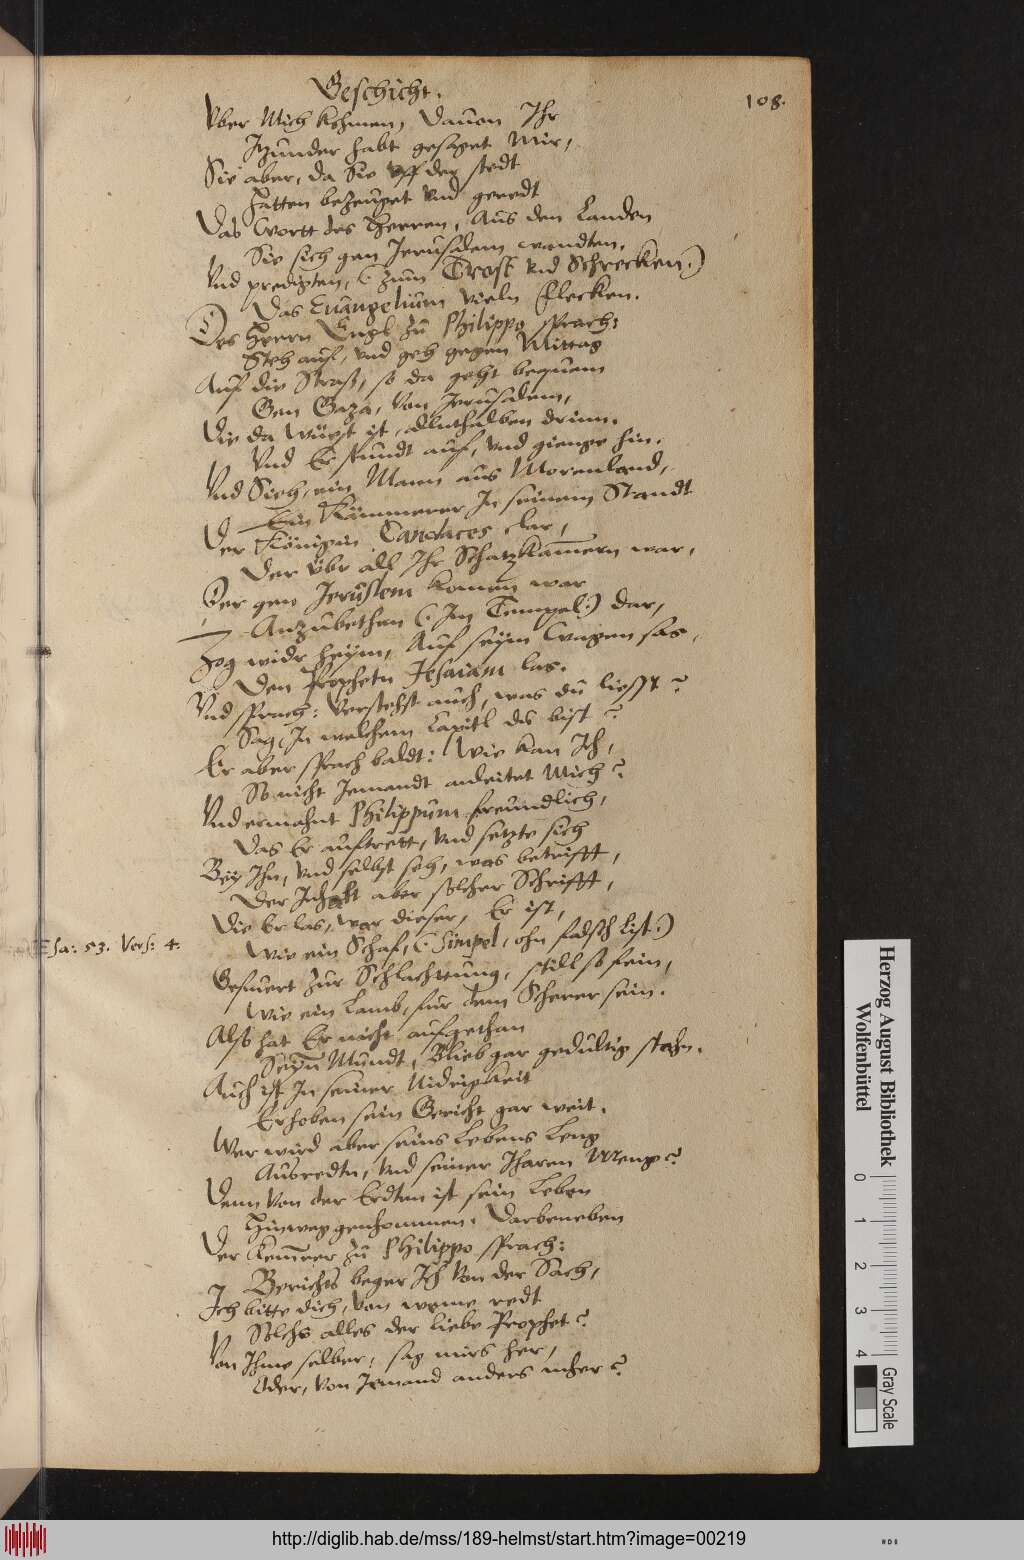 Geschicht.
108.
Vber Mich kohmen, dauon Ihr
Itzunder habt gesaget Mir,
Sie aber, da Sie vff der stedt
Hatten bezeuget vnd geredt
Das Wortt des Herren, Aus den Landen
Sie sich gen Jerusalem wandten,
Vnd predigten, (: zum Trost vnd Schrecken:)
Das Euangelium vieln Flecken.
Des Herrn Engl zu Philippo sprach:
Steh auf, vnd geh gegen Mittag
Auf die Straß, so da geht bequem
Gen Gaza, von Jerusalem,
Die da wüest ist, allnthalben drinn.
Vnd Er stundt auf, vnd gienge hin.
Vnd Sieh, ein Mann aus Morenland,
Ein Kämmerer In seinem Standt
Der Königin Candaces clar,
Der übr all Ihr Schatzkamern war,
Der gen Jeruslem komen war
Anzubethen (: Im Tempel:) dar,
Zog widr heym, Auf seym Wagen sas,
Den Prophetn Jesaiam las.
Vnd sprach: Verstehst auch, was du liesst?
Sag, In welchem Capitl du bist?
Er aber sprach baldt: Wie kan Ich,
So nicht Jemandt anleitet Mich?
Vnd ermahnt Philippum freundlich,
Das Er auftrett, vnd setzte sich
Bey Ihn, vnd selbst seh, was betrifft,
Der Inhalt aber solcher Schrifft,
Die Er las, war dieser, Er ist,
Esa: 53. Vers: 4.
Wie ein Schaf, (: Simpel, ohn falsch list:)
Gefuert zur Schlachttung, still so fein,
Wie ein Lamb, fur dem Scherer sein.
Also hat Er nicht aufgethan
Seyn Mundt, Blieb gar gedultig stahn.
Auch ist In seiner Nidrigkeit
Erhoben sein Gericht gar weit.
Wer wird aber seins Lebens Leng
Ausredtn, vnd seiner Iharen Meng?
Denn von der Erdten ist sein Leben
Hinweg genhommen. Darbeneben
Der Kemrer zu Philippo sprach:
Berichts beger Ich von der Sach,
Ich bitte dich, von weme redt
Solchs alles der liebe Prophet?
Von Ihme selber, sag mirs her,
Oder, von Jemand anders mher?
Herzog August Bibliothek
Wolfenbüttel
0 1 2 3 4
Gray Scale
http://diglib.hab.de/mss/189-helmst/start.htm?image=00219